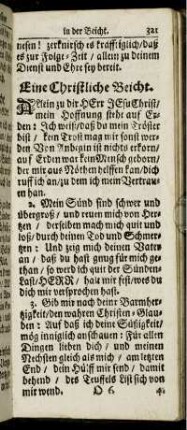 in der Beicht. 321
nesen! zerknirsch es krafftiglich/daß
es zur Folge-Zeit / allein zu deinem
Dienst und Ehre sey bereit.
Eine Christliche Beicht.
Allein zu dir HErr JEsu Christ/
mein Hoffnung steht auf Er-
den: Ich weiß/daß du mein Tröster
bist / kein Trost mag mir sonst wer-
den Von Anbegin ist nichts erkorn/
auf Erden war kein Mensch geborn/
der mir aus Nöthen helffen kan/dich
ruff ich an/zu dem ich mein Vertrau-
en han.
2. Mein Sünd sind schwer und
übergroß / und reuen mich von Her-
tzen / derselben mach mich quit und
loß/durch deinen Tod und Schmer-
tzen: Und zeig mich deinem Vater
an / daß du hast gnug für mich ge-
than / so werd ich quit der Sünden-
Last/HERR / halt mir fest/wes du
dich mir versprochen hast.
3. Gib mir nach deiner Barmher-
tzigkeit/den wahren Christen-Glau-
ben: Auf daß ich deine Süßigkeit/
mög inniglich anschauen: Für allen
Dingen lieben dich/ und meinen
Nechsten gleich als mich / am letzten
End / dein Hülff mir send / damit
behend / des Teuffels List sich von
mir wend. O 6 4.